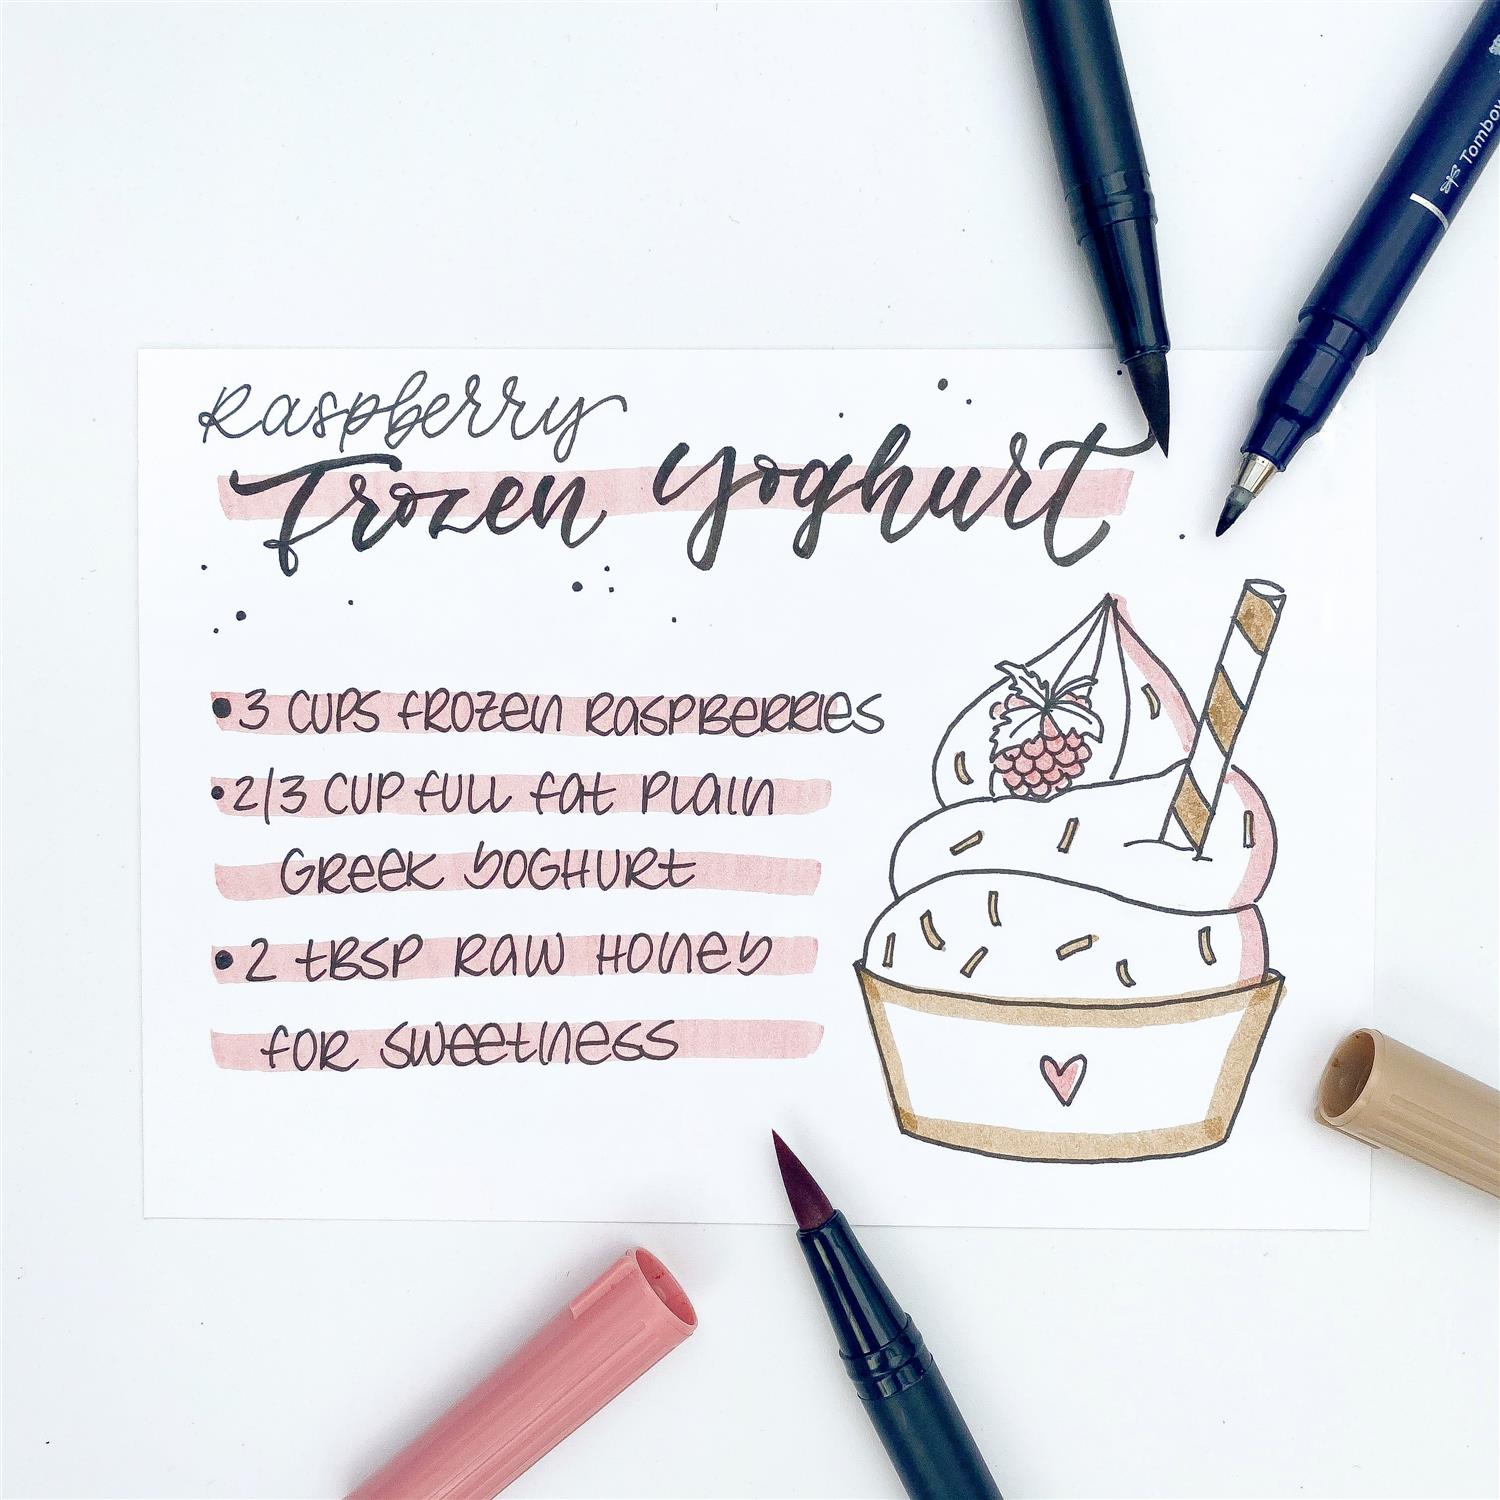 Raspberry
Frozen Yoghurt
• 3 CUPS FROZEN RASPBERRIES
• 2/3 CUP FULL FAT PLAIN
GREEK YOGHURT
• 2 TBSP RAW HONEY
FOR SWEETNESS
Tombow